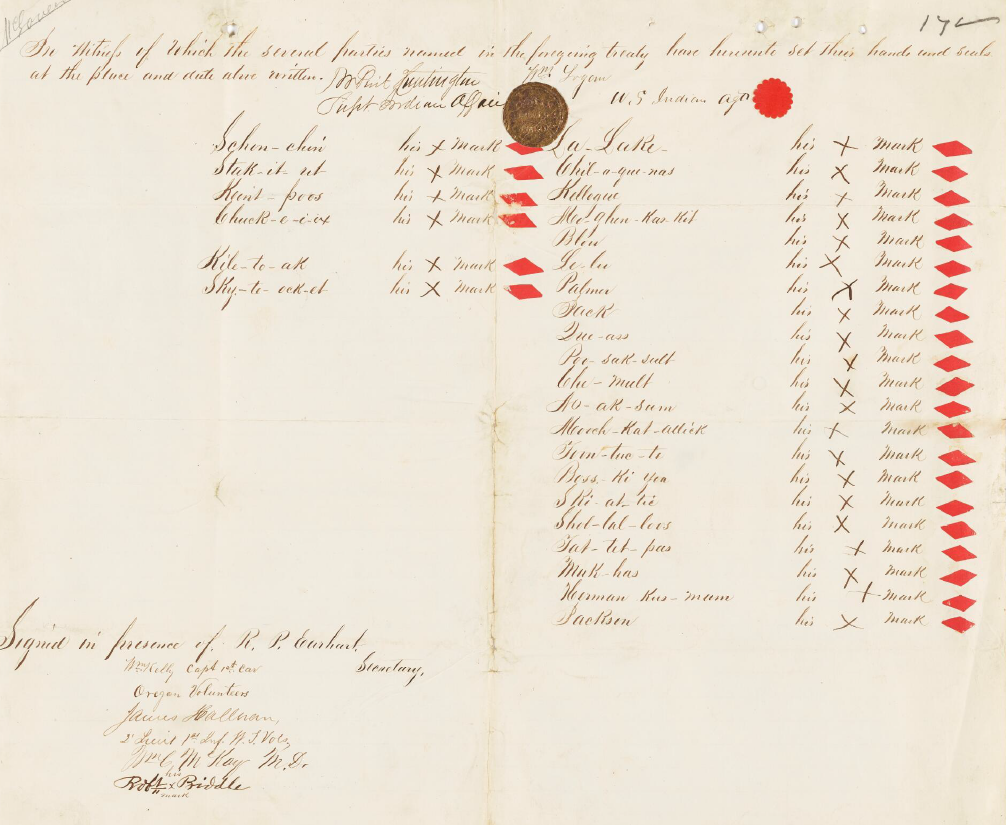 In Witness of which the several parties named in the foregoing treaty have hereunto set their hands and seals
at the place and date above written.
J W Perit Huntington
Supt Indian Affairs
Wm Logan
U.S Indian Agt
172
McGovern
Schon-chin his X mark
Stak-it-ut his X mark
Keint-poos his X mark
Chuck-e-i-ox his X mark
Kile-to-ak his X mark
Sky-te-ock-et his X mark
La-Lake- his X mark
Chil-o-que-nas his X mark
Kellogue his X mark
Mo-ghen-kas-kit his X mark
Blow his X mark
Le-lu his X mark
Palmer his X mark
Jack his X mark
Que-ass his X mark
Poo-sak-sult his X mark
Che-mult his X mark
No-ak-sum his X mark
Mooch-kat-allick his X mark
Toon-tuc-te his X mark
Boss-ki you his X mark
Ski-at-tic his X mark
Shol-lal-loos his X mark
Tat-tet-pas his X mark
Muk-has his X mark
Herman kus-mam his X mark
Jackson his X mark
Signed in presence of. R. P. Earhart,
Secretary,
Wm Kelly Capt 1st Cav
Oregon Volunteers
James Halloran,
2 Lieut 1st Inf. W. T. Vols,
Wm C McKay M.D.
his
Robt X Biddle
mark